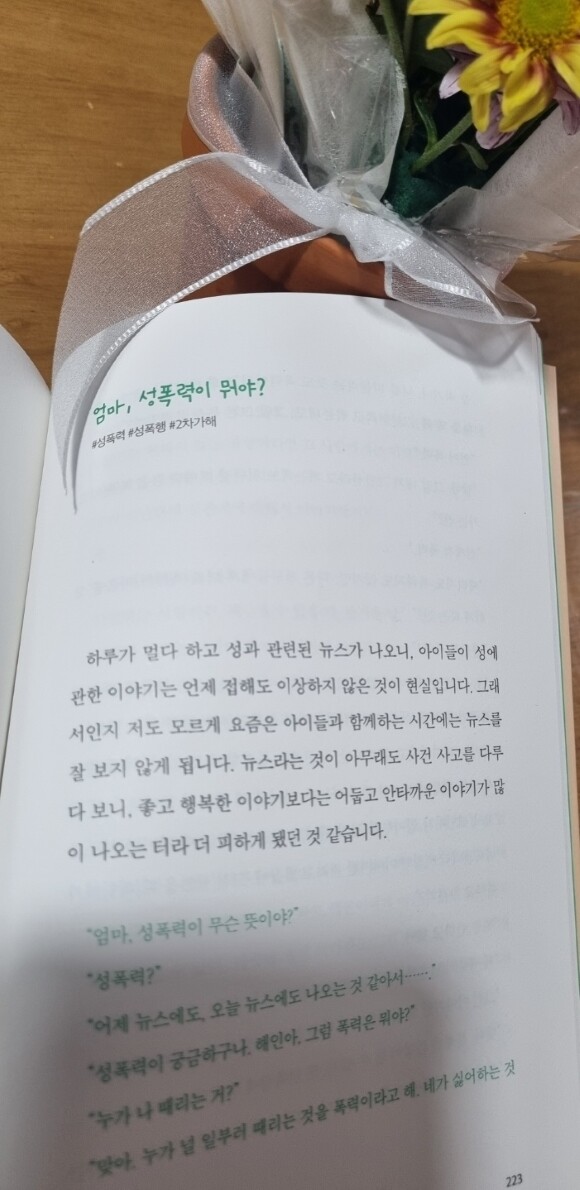 엄마, 성폭력이 뭐야?
#성폭력 #성폭행 #2차가해
하루가 멀다 하고 성과 관련된 뉴스가 나오니, 아이들이 성에
관한 이야기는 언제 접해도 이상하지 않은 것이 현실입니다. 그래
서인지 저도 모르게 요즘은 아이들과 함께하는 시간에는 뉴스를
잘 보지 않게 됩니다. 뉴스라는 것이 아무래도 사건 사고를 다루
다 보니, 좋고 행복한 이야기보다는 어둡고 안타까운 이야기가 많
이 나오는 터라 더 피하게 됐던 것 같습니다.
"엄마, 성폭력이 무슨 뜻이야?"
"성폭력?"
"어제 뉴스에도, 오늘 뉴스에도 나오는 것 같아서……."
"성폭력이 궁금하구나. 해인아, 그럼 폭력은 뭐야?"
"누가 나 때리는 거?"
"맞아. 누가 널 일부러 때리는 것을 폭력이라고 해. 네가 싫어하는 것
223